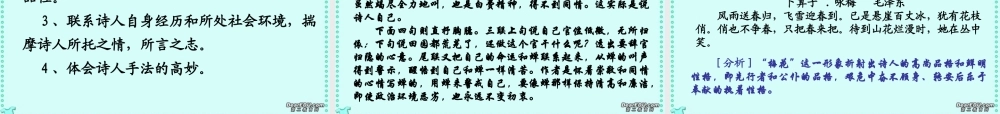 3、联系诗人自身经历和所处社会环境，揣
摩诗人所托之情，所言之志。
4、体会诗人手法的高妙。
虽然竭尽全力地叫，也是白费精神，得不到同情。这实际是说
诗人自己。
下面四句则直抒胸臆。三联上句说自己官位低微，无所归
依；下句说田园都荒芜了，还做这个官干什么呢？透出要辞官
归隐的心意。尾联又把自己的命运和蝉联系起来，从蝉的叫声
得到警示，醒悟到自己和蝉一样清苦。作者是怀着崇敬和同情
的心情写蝉的，用蝉来警戒自己，要像蝉那样保持清高和廉洁，
即使政治环境恶劣，也永远不变初衷。
卜算子．咏梅 毛泽东
风雨送春归，飞雪迎春到。已是悬崖百丈冰，犹有花枝
俏。俏也不争春，只把春来把。待到山花烂漫时，她在丛中
笑。
[分析]“梅花”这一形象折射出诗人的高尚品格和鲜明
性格，即先行者和公仆的品格，艰危中奋不顾身、转安后乐于
奉献的执着性格。